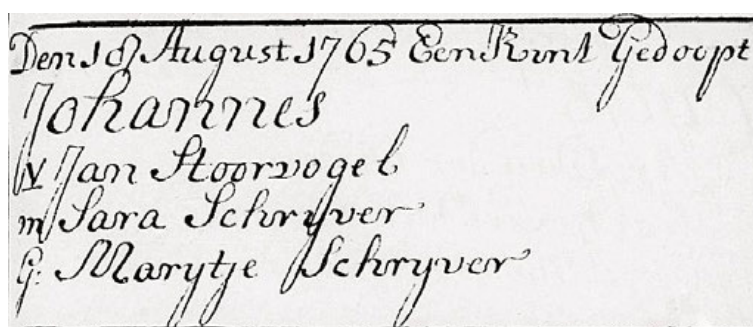 Den 18 August 1765 Een Kint Gedoopt
Johannes
V Jan Stoorvogel
m Sara Schryver
G: Marytje Schryver